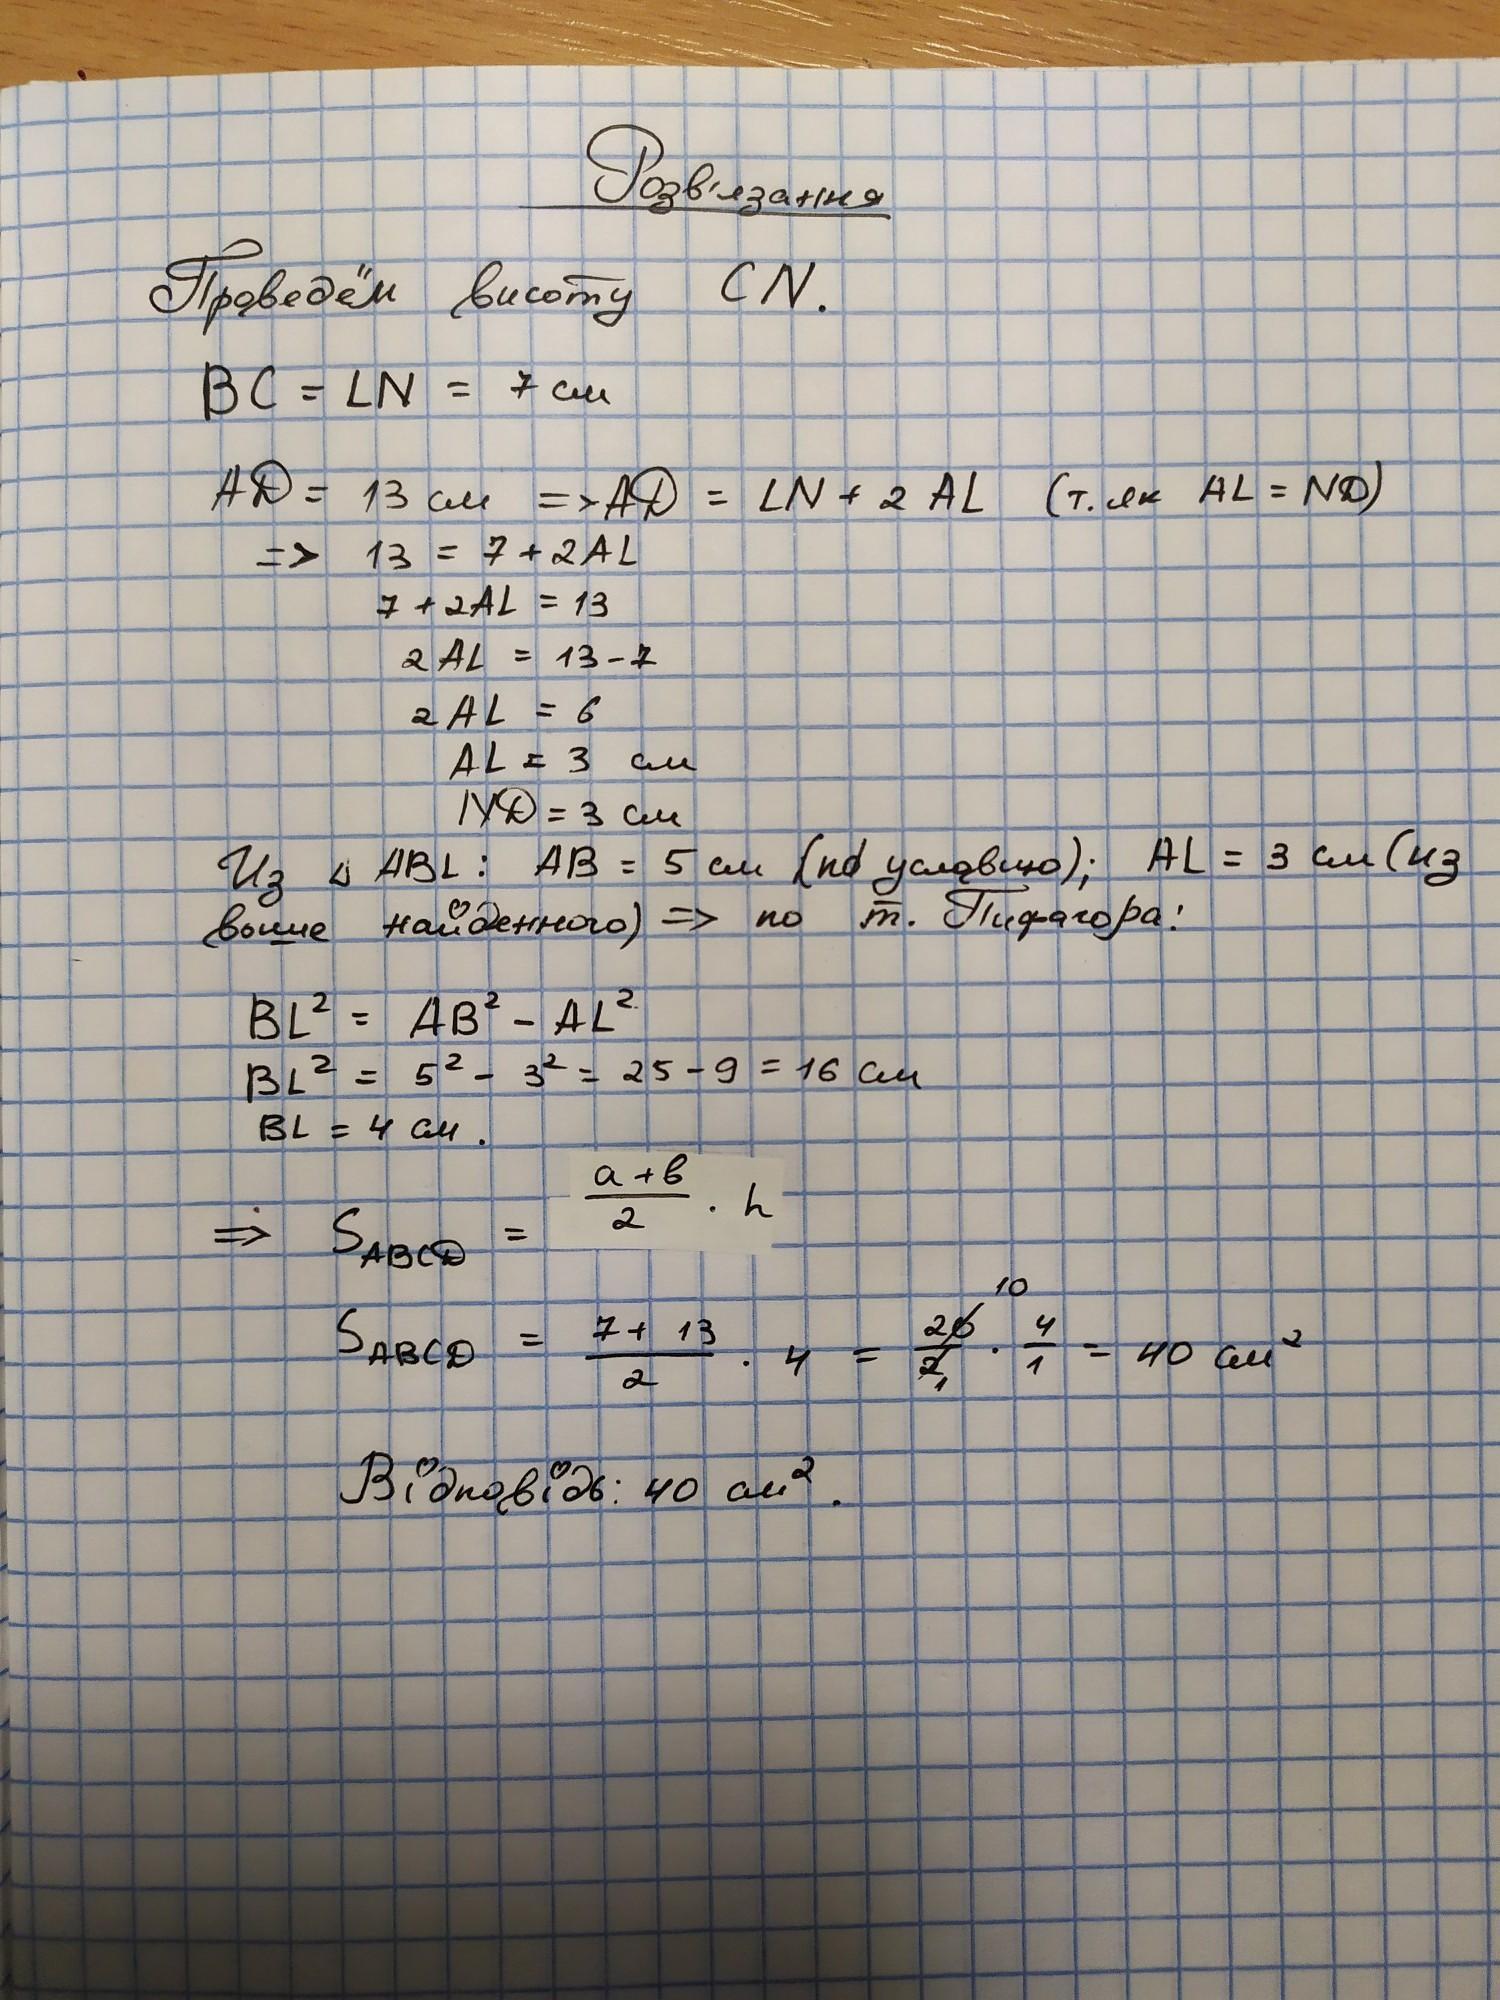 Розв'язання
Проведём висоту CN.
BC = LN = 7 см
AD = 13 см => AD = LN + 2 AL (т. як AL = ND)
=> 13 = 7 + 2AL
7 + 2AL = 13
2 AL = 13 - 7
2 AL = 6
AL = 3 см
ND = 3 см
Из △ ABL: AB = 5 см (по условию); AL = 3 см (из
выше найденного) => по т. Пифагора:
BL² = AB² - AL²
BL² = 5² - 3² = 25 - 9 = 16 см
BL = 4 см.
=> S_ABCD = (a + b)/2 · h
S_ABCD = (7 + 13)/2 · 4 = 20/2 · 4/1 = 40 см²
Відповідь: 40 см².